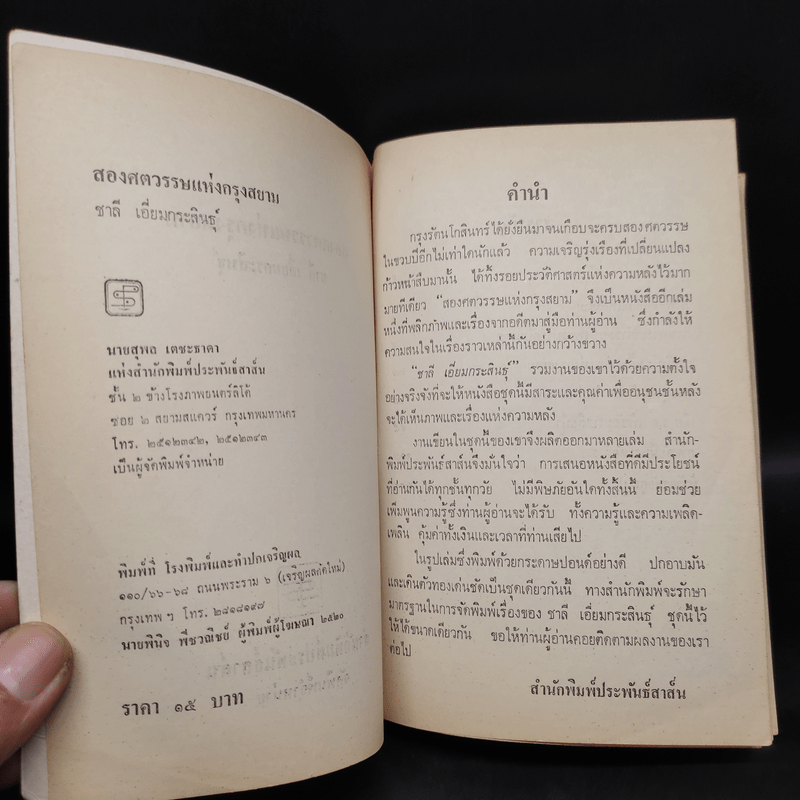 สองศตวรรษแห่งกรุงสยาม
ชาลี เอี่ยมกระสินธุ์
นายสุพล เตชะธาดา
แห่งสำนักพิมพ์ประพันธ์สาส์น
ชั้น ๒ ข้างโรงภาพยนตร์ลิโด้
ซอย ๒ สยามสแควร์ กรุงเทพมหานคร
โทร. ๒๕๑๒๓๔๒, ๒๕๑๒๓๔๓
เป็นผู้จัดพิมพ์จำหน่าย
พิมพ์ที่ โรงพิมพ์และทำปกเจริญผล
๑๑๐/๖๖-๖๘ ถนนพระราม ๖ (เจริญผลตัดใหม่)
กรุงเทพฯ โทร. ๒๘๑๘๑๙๘
นายพินิจ พืชวณิชย์ ผู้พิมพ์ผู้โฆษณา ๒๕๒๐
ราคา ๑๕ บาท
คำนำ
กรุงรัตนโกสินทร์ได้ยั่งยืนมาจนเกือบจะครบสองศตวรรษ
ในขวบปีอีกไม่เท่าใดนักแล้ว ความเจริญรุ่งเรืองที่เปลี่ยนแปลง
ก้าวหน้าสืบมานั้น ได้ทิ้งรอยประวัติศาสตร์แห่งความหลังไว้มาก
มายทีเดียว “สองศตวรรษแห่งกรุงสยาม” จึงเป็นหนังสืออีกเล่ม
หนึ่งที่พลิกภาพและเรื่องจากอดีตมาสู่มือท่านผู้อ่าน ซึ่งกำลังให้
ความสนใจในเรื่องราวเหล่านี้กันอย่างกว้างขวาง
“ชาลี เอี่ยมกระสินธุ์” รวมงานของเขาไว้ด้วยความตั้งใจ
อย่างจริงจังที่จะให้หนังสือชุดนี้มีสาระและคุณค่าเพื่ออนุชนชั้นหลัง
จะได้เห็นภาพและเรื่องแห่งความหลัง
งานเขียนในชุดนี้ของเขาจึงผลิตออกมาหลายเล่ม สำนัก-
พิมพ์ประพันธ์สาส์นจึงมั่นใจว่า การเสนอหนังสือที่ดีมีประโยชน์
ที่อ่านกันได้ทุกชั้นทุกวัย ไม่มีพิษภัยอันใดทั้งสิ้นนี้ ย่อมช่วย
เพิ่มพูนความรู้ซึ่งท่านผู้อ่านจะได้รับ ทั้งความรู้และความเพลิด-
เพลิน คุ้มค่าทั้งเงินและเวลาที่ท่านเสียไป
ในรูปเล่มซึ่งพิมพ์ด้วยกระดาษปอนด์อย่างดี ปกอาบมัน
และเดินตัวทองเด่นชัดเป็นชุดเดียวกันนี้ ทางสำนักพิมพ์จะรักษา
มาตรฐานในการจัดพิมพ์เรื่องของ ชาลี เอี่ยมกระสินธุ์ ชุดนี้ไว้
ให้ได้ขนาดเดียวกัน ขอให้ท่านผู้อ่านคอยติดตามผลงานของเรา
ต่อไป
สำนักพิมพ์ประพันธ์สาส์น